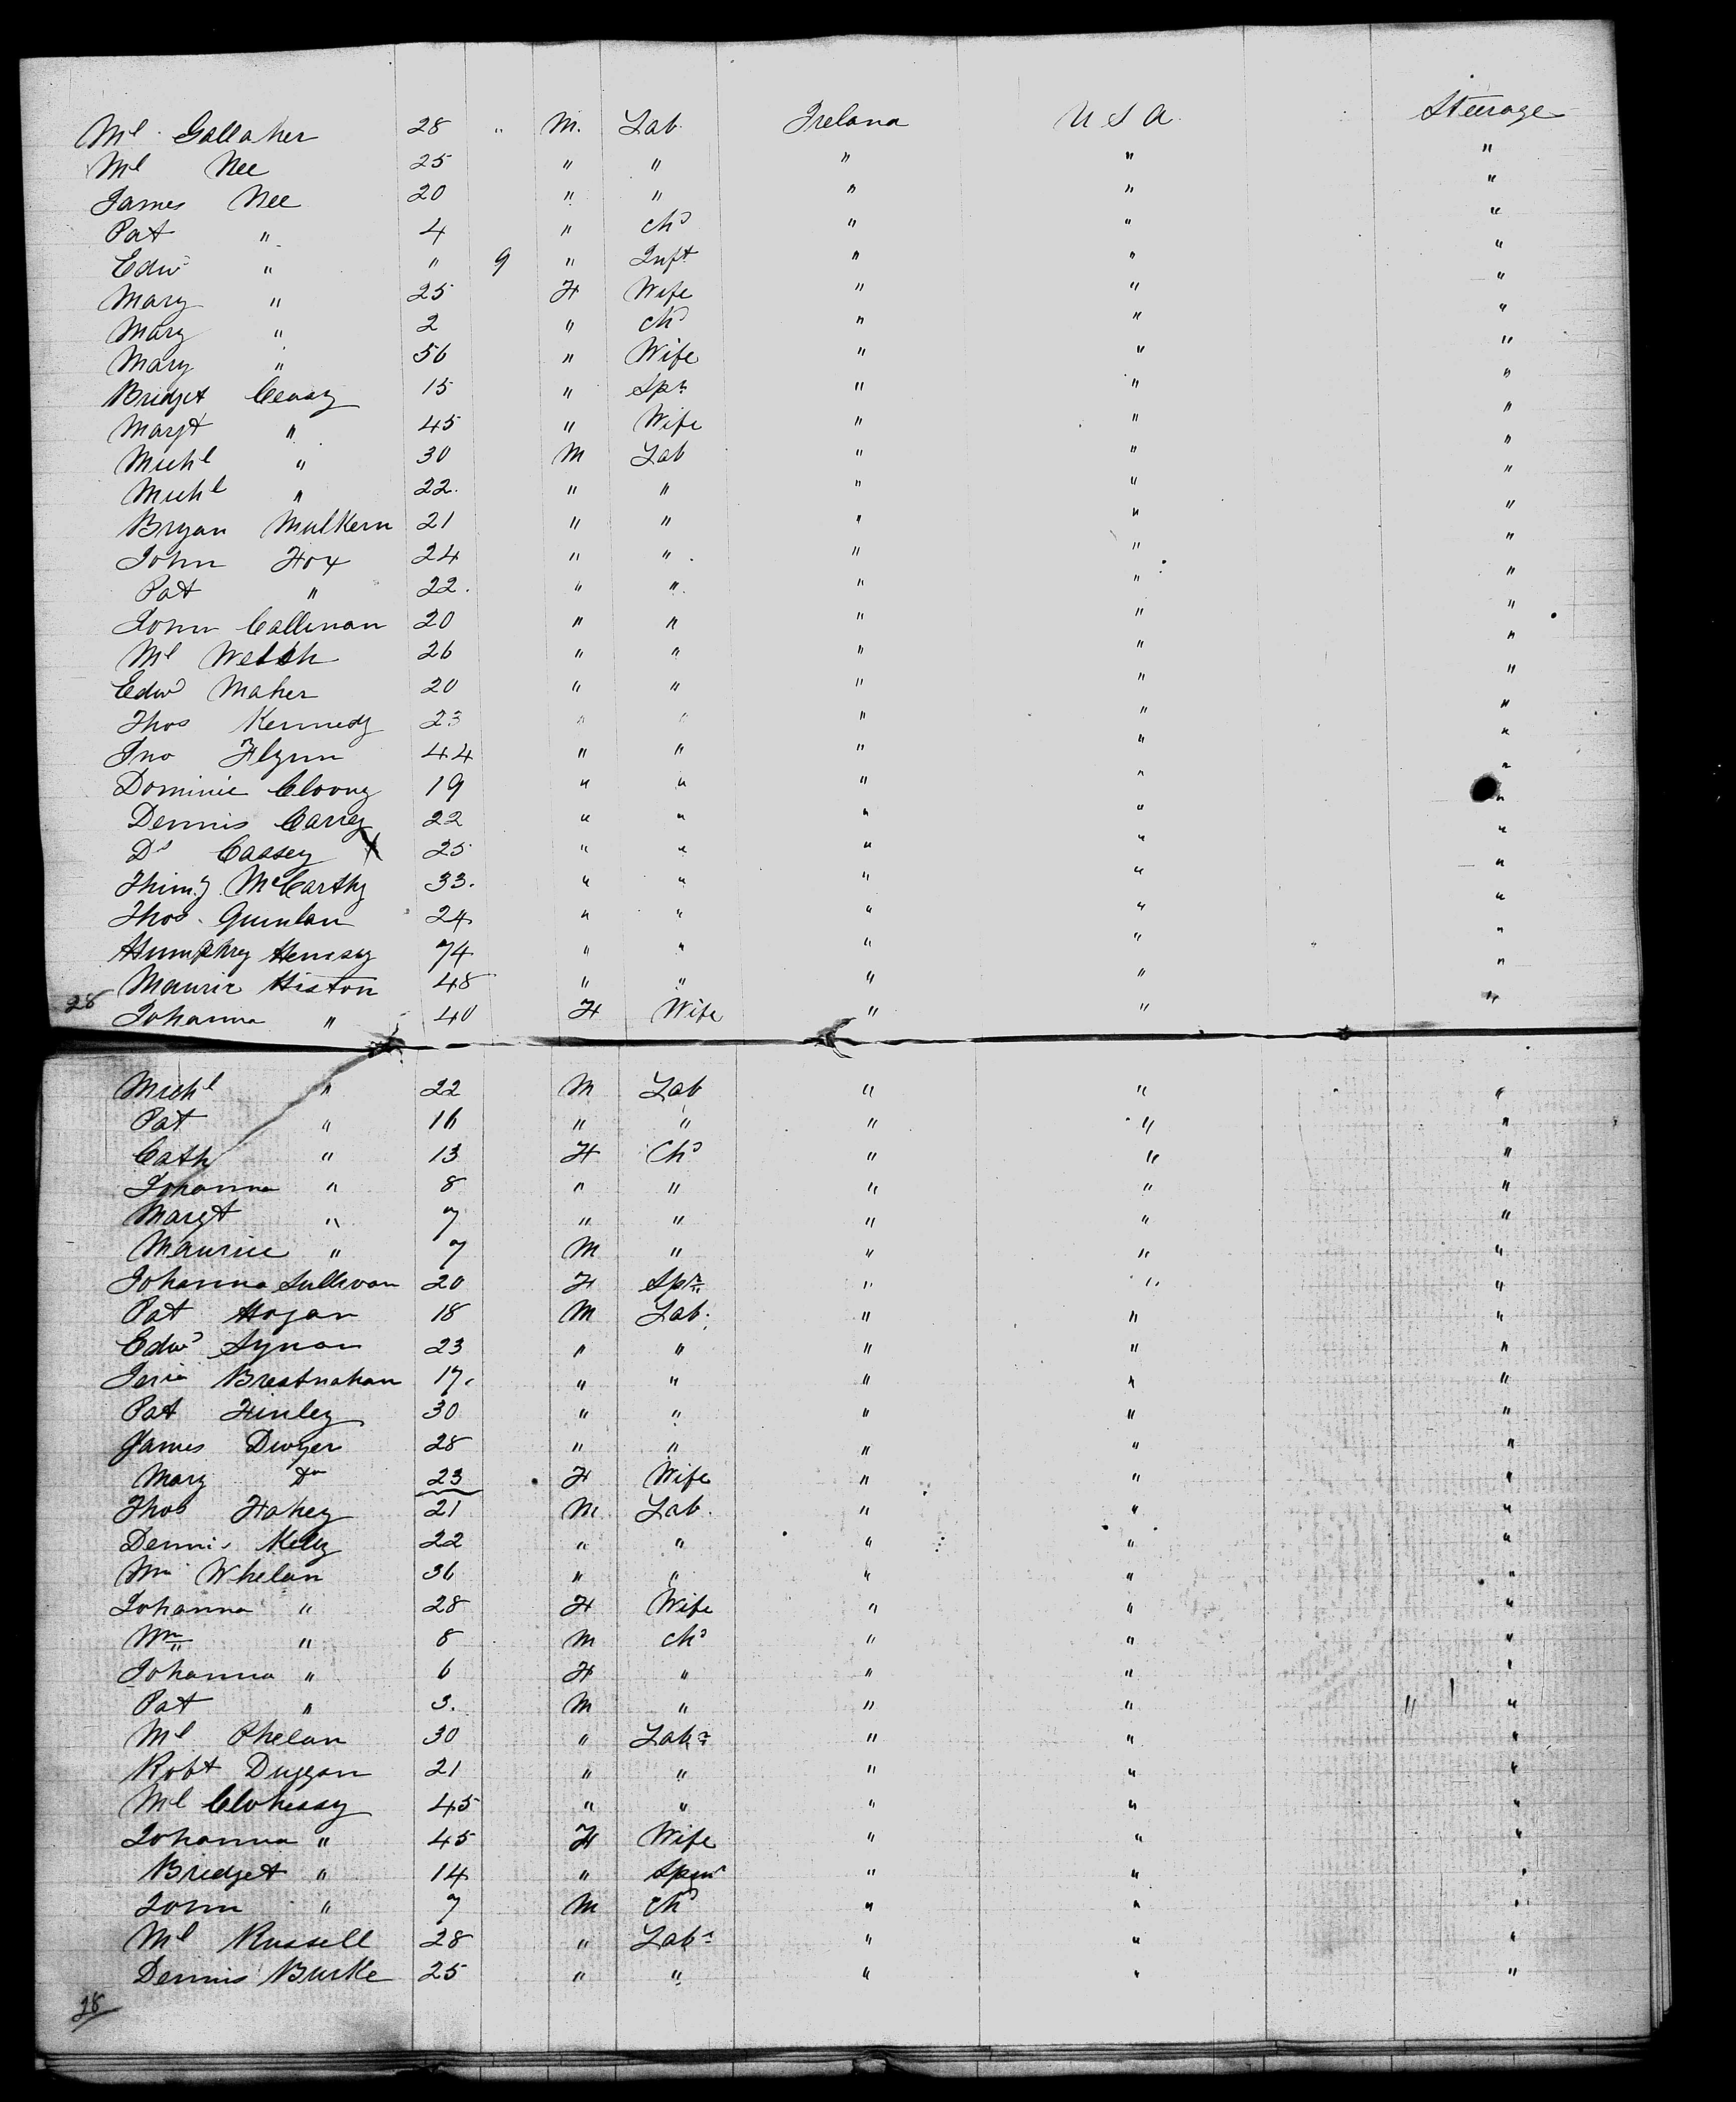 Ml Gallaher 28 " M. Lab Ireland U S A Steerage
Ml Nee 25 " " " " "
James Nee 20 " " " " "
Pat " 4 " Chd " " "
Edwd " " 9 " Inft " " "
Mary " 25 F Wife " " "
Mary " 2 " Chd " " "
Mary " 56 " Wife " " "
Bridget 15 " Spr " " "
Margt " 45 " Wife " " "
Michl " 30 M Lab " " "
Michl " 22. " " " " "
Bryan Mulkern 21 " " " " "
John Fox 24 " " " " "
Pat " 22. " " " " "
John Callinan 20 " " " " "
Ml Welsh 26 " " " " "
Edwd Maher 20 " " " " "
Thos Kennedy 23 " " " " "
Jno Flynn 44 " " " " "
Dominic Cloony 19 " " " " "
Dennis Carey 22 " " " " "
Ds Cassey 25 " " " " "
Thimy McCarthy 33. " " " " "
Thos Quinlan 24 " " " " "
Humphry Hennesy 74 " " " " "
Maurice Histon 48 " " " " "
28 Johanna " 40 F Wife " " "
Michl " 22 M Lab " " "
Pat " 16 " " " " "
Cath " 13 F Chd " " "
Johanna " 8 " " " " "
Margt " 7 " " " " "
Maurice " 7 M " " " "
Johanna Sullivan 20 F Spr " " "
Pat Hogan 18 M Lab. " " "
Edwd Synan 23 " " " " "
Jeria Brestnahan 17. " " " " "
Pat Finley 30 " " " " "
James Dwyer 28 " " " " "
Mary Do 23 F Wife " " "
Thos Fahey 21 M Lab. " " "
Dennis Kelly 22 " " " " "
Wm Whelan 36 " " " " "
Johanna " 28 F Wife " " "
Wm " 8 M Chd " " "
Johanna " 6 F " " " "
Pat " 3. M " " " " "
Ml Phelan 30 " Labr " " "
Robt Duggan 21 " " " " "
Ml Clohessy 45 " " " " "
Johanna " 45 F Wife " " "
Bridget " 14 " Spr " " "
John " 7 M Chd " " "
Ml Russell 28 " Labr " " "
Dennis Burke 25 " " " " "
28